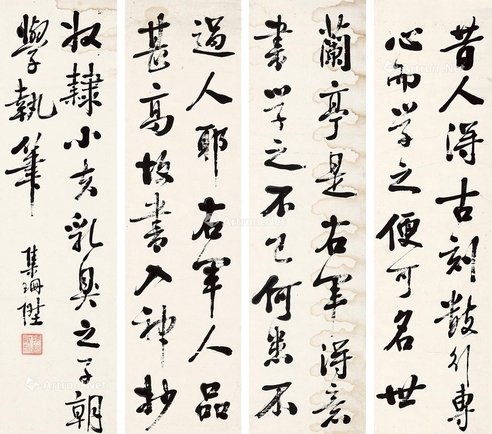 昔人得古刻數行專
心而學之便可名世
蘭亭是右軍得意
書學之不已何患不
過人耶右軍人品
甚高故書入神
奴隸小亥乳臭之子朝
學執筆
集珊陞